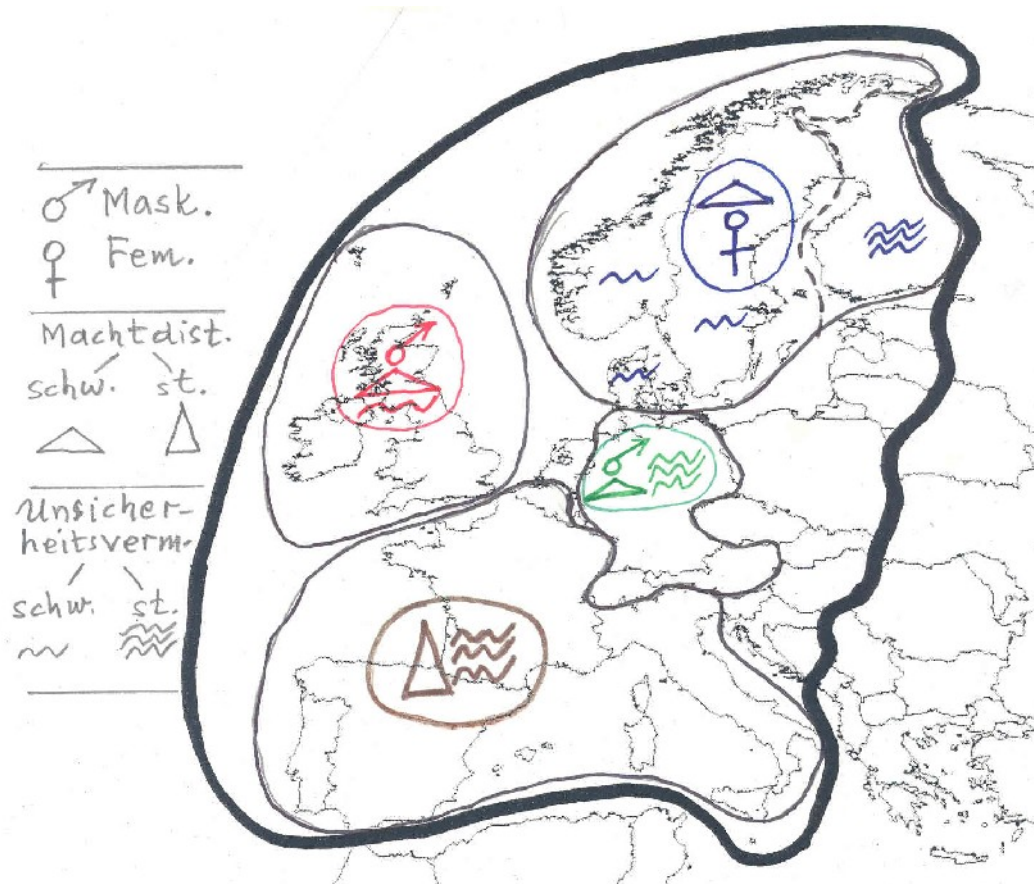 Mask.
Fem.
Machtdist.
schw. st.
Unsicher-
heitsverm.
schw. st.